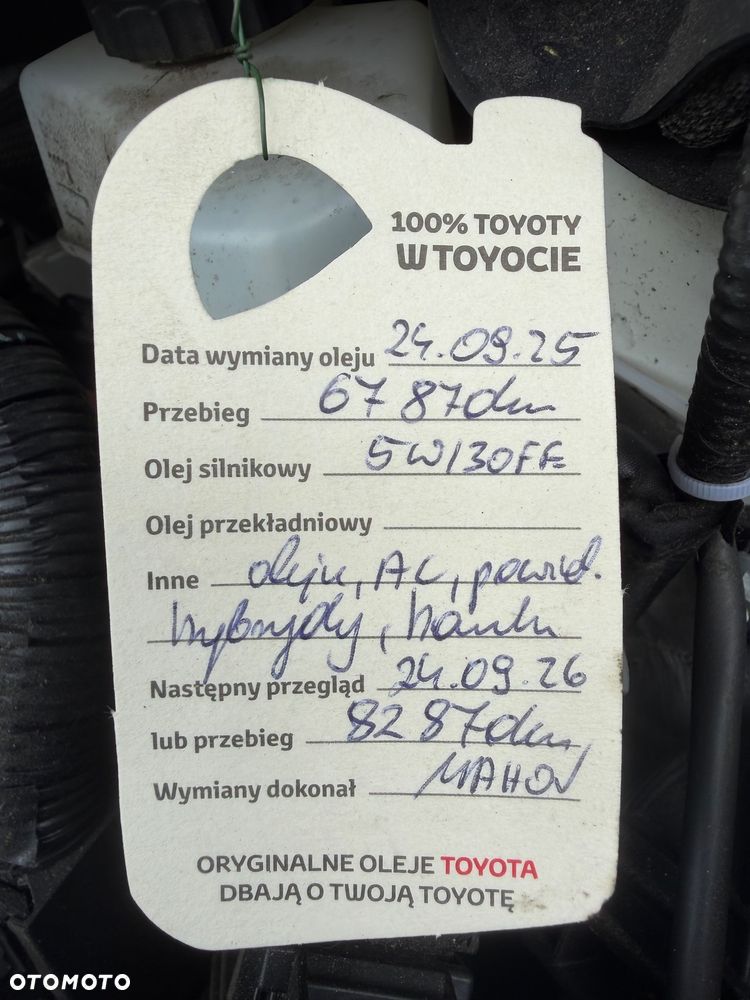 100% TOYOTY
W TOYOCIE
Data wymiany oleju 24.09.25
Przebieg 67 870km
Olej silnikowy 5W/30FE
Olej przekładniowy
Inne oleju, AC, powiet.
hybrydy,
Następny przegląd 24.09.26
lub przebieg 82 870km
Wymiany dokonał
ORYGINALNE OLEJE TOYOTA
DBAJĄ O TWOJĄ TOYOTĘ
OTOMOTO